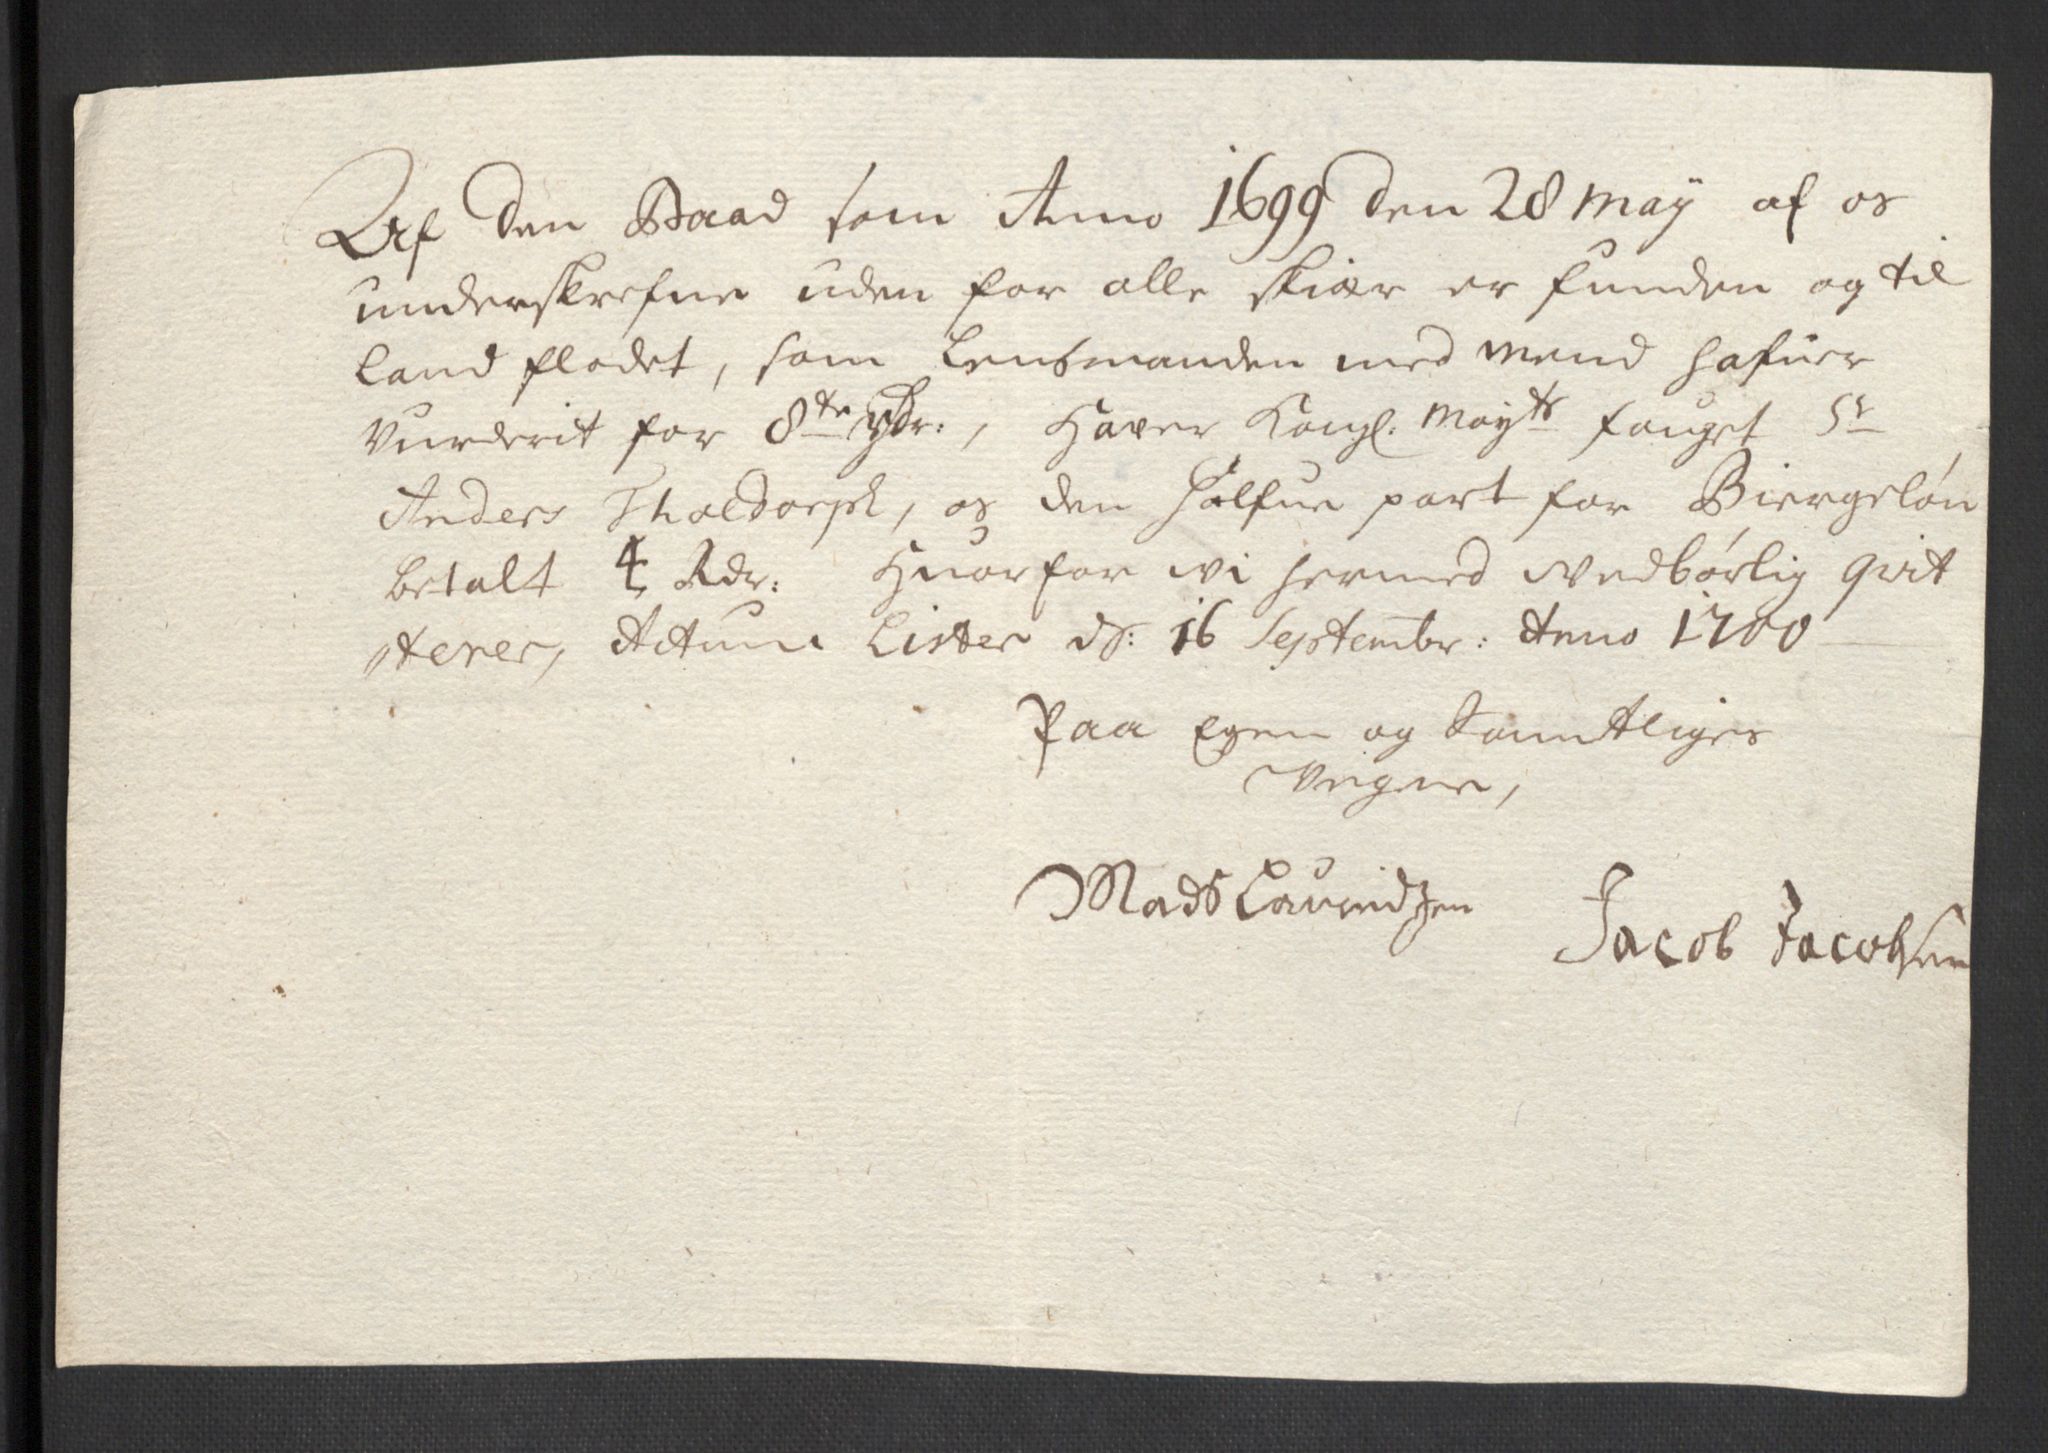 Af den Baad som Anno 1699 den 28 Maÿ af os
underskrefne uden for alle skiær er funden og til
Land flodet, som Lensmanden med Mend hafuer
Vurderit for 8te Rdr:, Hawer Kongl: Maÿts fouget Sr
Anders Tholdorph, os den halfue part for Biergeløn
betalt 4 Rdr: Huorfor wi hermed Wedbørlig qvit
terer, Actum Lister ds: 16 Septembr: Anno 1700
Paa Egen og Samtliges
Vegne,
Mads Lauridzen Jacob Jacobsen